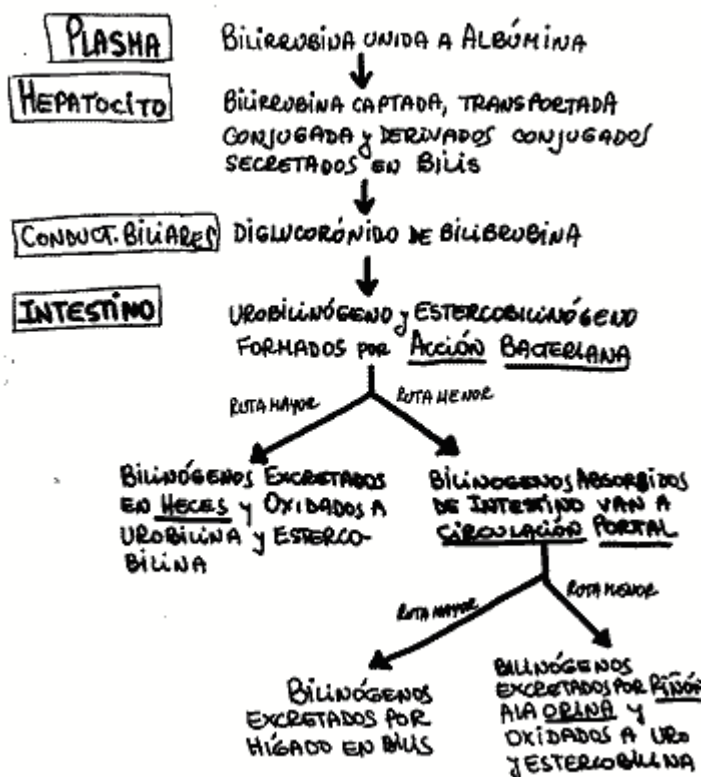 PLASMA
BILIRRUBINA UNIDA A ALBÚMINA
HEPATOCITO
BILIRRUBINA CAPTADA, TRANSPORTADA
CONJUGADA y DERIVADOS CONJUGADOS
SECRETADOS EN BILIS
CONDUCT. BILIARES
DIGLUCORÓNIDO DE BILIBRUBINA
INTESTINO
UROBILINÓGENO y ESTERCOBILINÓGENO
FORMADOS POR ACCIÓN BACTERIANA
RUTA MAYOR
RUTA MENOR
BILINÓGENOS EXCRETADOS
EN HECES y OXIDADOS A
UROBILINA y ESTERCO-
BILINA
BILINOGENOS ABSORBIDOS
DE INTESTINO VAN A
CIRCULACIÓN PORTAL
RUTA MAYOR
RUTA MENOR
BILINÓGENOS
EXCRETADOS POR
HÍGADO EN BILIS
BILINÓGENOS
EXCRETADOS POR RIÑÓN
A LA ORINA y
OXIDADOS A URO
y ESTERCOBILINA